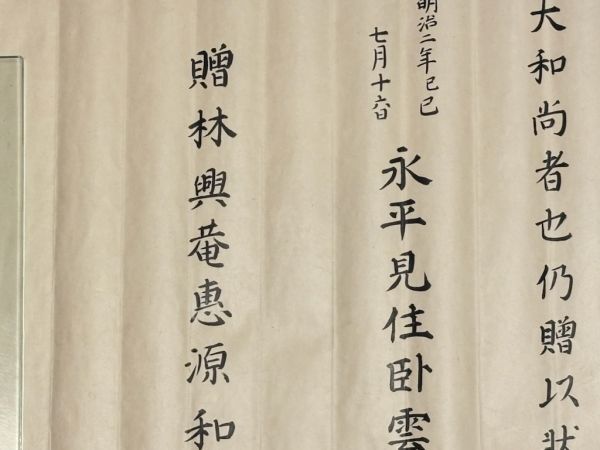 大和尚者也仍贈以状
明治二年己巳
七月十六日
永平見住卧雲
贈林興菴惠源和